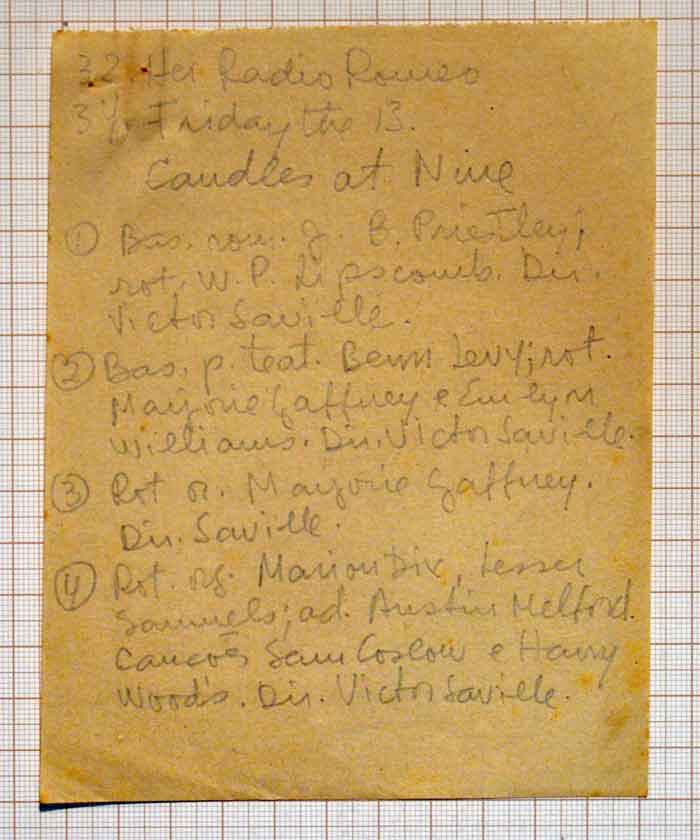 32 Her Radio Romeo
3 Friday the 13.
Candles at Nine
① Bas. rom. J. B. Priestley;
rot. W. P. Lipscomb. Dir.
Victor Saville.
② Bas. p. teat. Benn Levy; rot.
Marjorie Gaffney e Emlyn
Williams. Dir. Victor Saville.
③ Rot or. Marjorie Gaffney.
Dir. Saville.
④ Rot. Marion Dix, Lesser
Samuels; ad. Austin Melford.
Cancões Sam Coslow e Harry
Woods. Dir. Victor Saville.